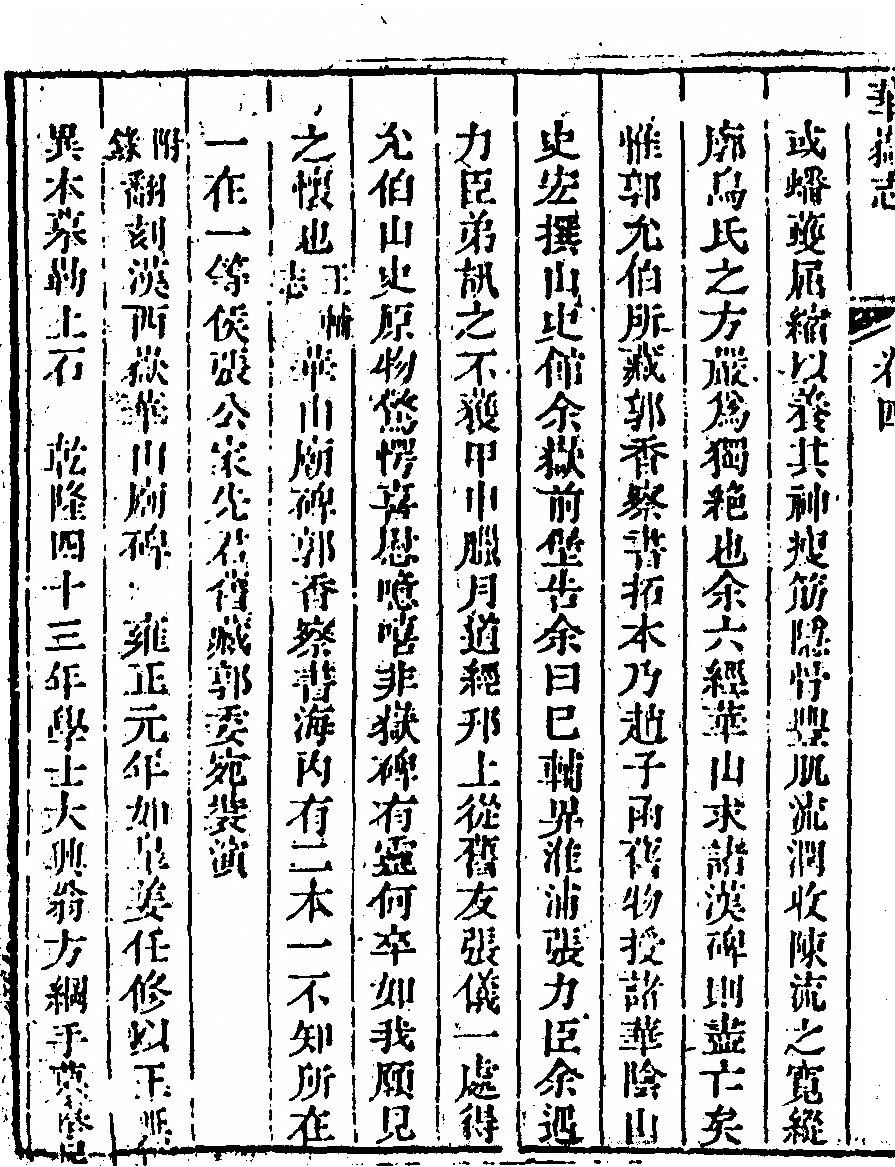 華嶽志 卷四
或蟠蠖屈縮以養其神瘦筋隱骨豐肌流潤收陳流之寬縱
廓烏氏之方嚴爲獨絶也余六經華山求諸漢碑則盡亡矣
惟郭允伯所藏郭香察書拓本乃趙子函舊物授諸華陰山
史宏撰山史館余嶽前堡告余曰已輔畀淮浦張力臣余過
力臣弟訊之不獲甲申臘月道經邗上從舊友張儀一處得
允伯山史原物驚愕喜慰噫嘻非嶽碑有靈何卒如我願見
之懷也 王志 輔 華山廟碑郭香察書海内有二本一不知所在
一在一等侯張公家先君舊藏郭委宛裝演
附錄 翻刻漢西嶽華山廟碑 雍正元年如皋姜任修以王
異本摹勒上石 乾隆四十三年學士大興翁方綱手摹